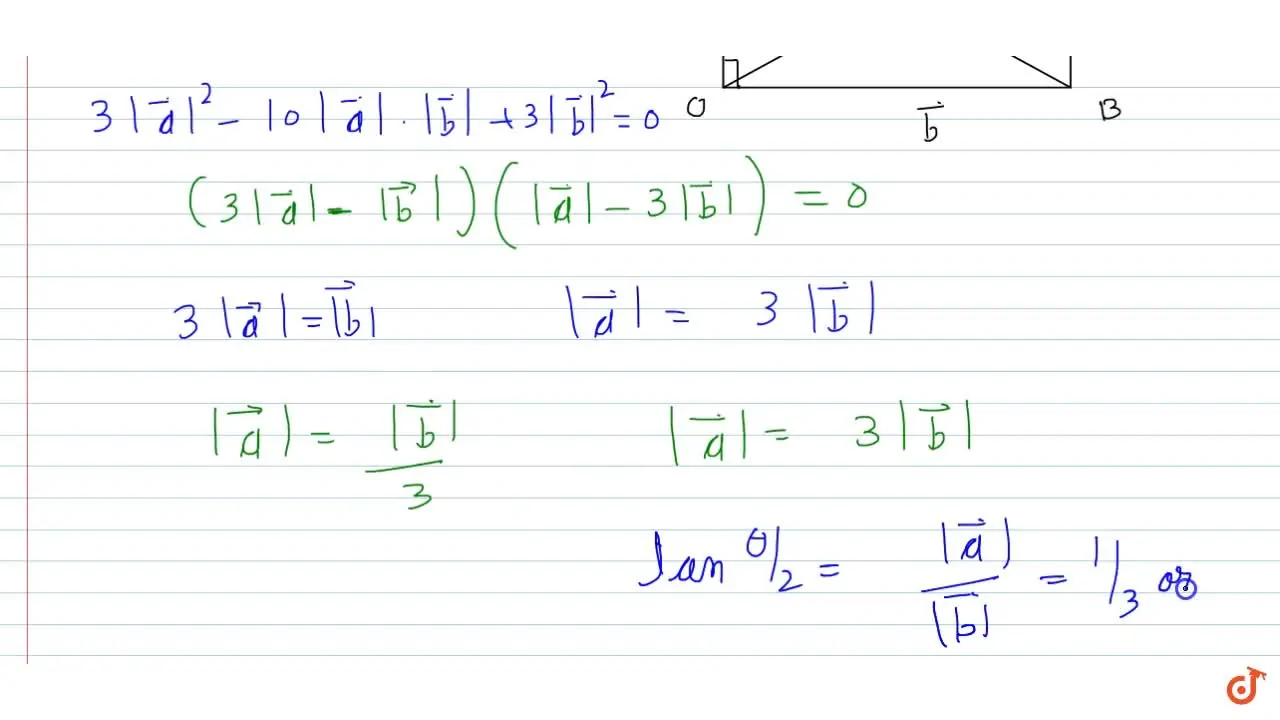 3|a⃗|² - 10|a⃗|·|b⃗| + 3|b⃗|² = 0
O
b⃗
B
(3|a⃗| - |b⃗|)(|a⃗| - 3|b⃗|) = 0
3|a⃗| = |b⃗|
|a⃗| = 3|b⃗|
|a⃗| = |b⃗|/3
|a⃗| = 3|b⃗|
tan θ/2 = |a⃗|/|b⃗| = 1/3 or